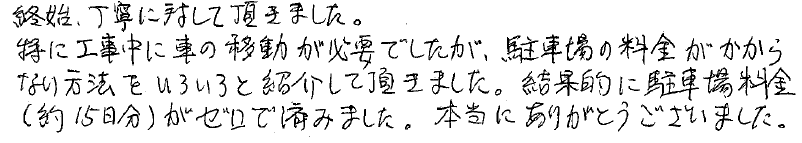 終始、丁寧に対して頂きました。
特に工事中に車の移動が必要でしたが、駐車場の料金がかから
ない方法をいろいろと紹介して頂きました。結果的に駐車場料金
(約15日分)がゼロで済みました。本当にありがとうございました。